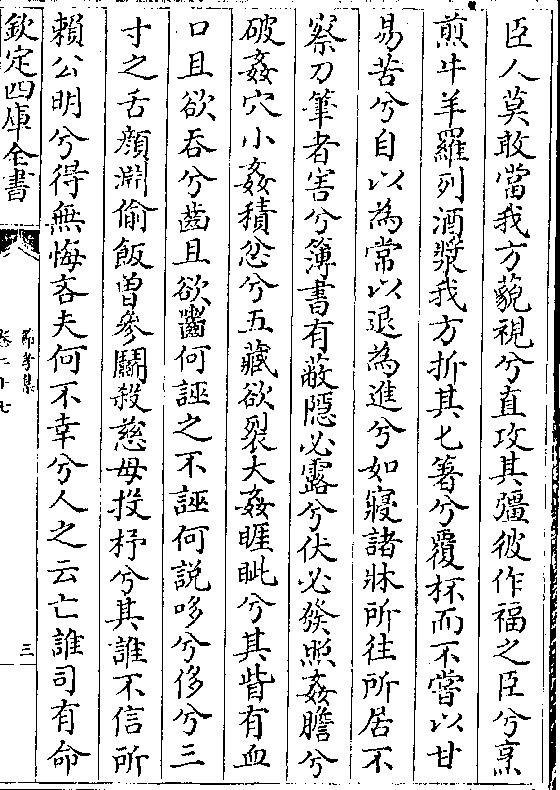 臣人莫敢當我方藐視兮直攻其彊彼作福之臣兮烹
煎牛羊羅列酒漿我方折其匕箸兮覆杯而不嘗以甘
易苦兮自以為常以退為進兮如寢諸牀所往所居不
察刀筆者害兮簿書有蔽隱必露兮伏必發照姦膽兮
破姦穴小姦積忿兮五藏欲裂大姦睚眦兮其眥有血
口且欲吞兮齒且欲齧何誣之不誣何説哆兮侈兮三
寸之舌顔淵偷飯曾參鬭殺慈母投杼兮其誰不信所
頼公明兮得無悔吝夫何不幸兮人之云亡誰司有命
欽定四庫全書
節孝集
卷二十七
三